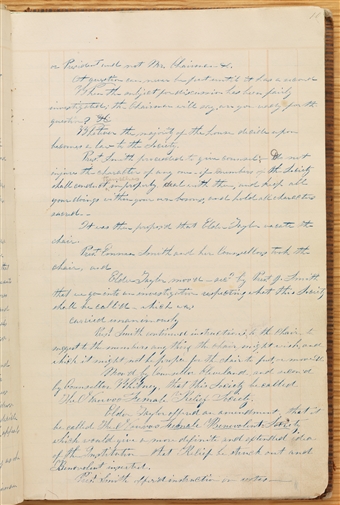 or President and not Mr. Chairman &c.
A question can never be put until it has a second
When the subject for discussion has been fairly
investigated; the Chairman will say, are you ready for the
question? &c.
Whatever the majority of the house decide upon
becomes a law to the Society.
Prest. Smith proceeded to give counsel; Do not
injure the character of any one—if members of the Society
shall conduct improperly deal with them, and keep all
your doings within your own bosoms, and hold all characters
sacred—
It was then proposed that Elder Taylor vacate the
chair.
Prest. Emma Smith and her Counsellors took the
chair, and
Elder Taylor moved—secd. by Prest. J. Smith
that we go into an investigation respecting what this Society
shall be called—which was
carried unanimously
Prest. Smith continued instructions to the Chair to
suggest to the members anything the chair might wish, and
which it might not be proper for the chair to put, or move &c.
Moved by Counsellor Cleveland, and secon'd
by Counsellor Whitney, that this Society be called
The Nauvoo Female Relief Society.
Elder Taylor offered an amendment, that it
be called The Nauvoo Female Benevolent Society
which would give a more definite and extended idea
of the Institution—that Relief be struck out and
Benevolent inserted.
Prest. Smith offer'd instruction on votes—